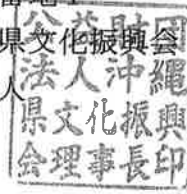 番地
県文化振興会
人
公益財団
法人沖縄
県文化振興
会理事長印